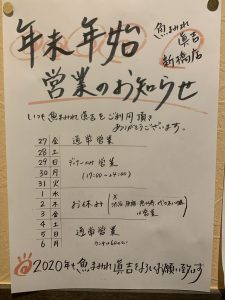 年末年始
営業のお知らせ
魚まみれ
眞吉
新橋店
いつも魚まみれ眞吉をご利用頂き
ありがとうございます。
27 金 通常営業
28 土
29 日 ディナーのみ営業
30 月 (17:00~24:00)
31 火
1 水
2 木 お休み
3 金 は営業
4 土
5 日 通常営業
6 月
2020年も魚まみれ眞吉をよろしくお願い致します